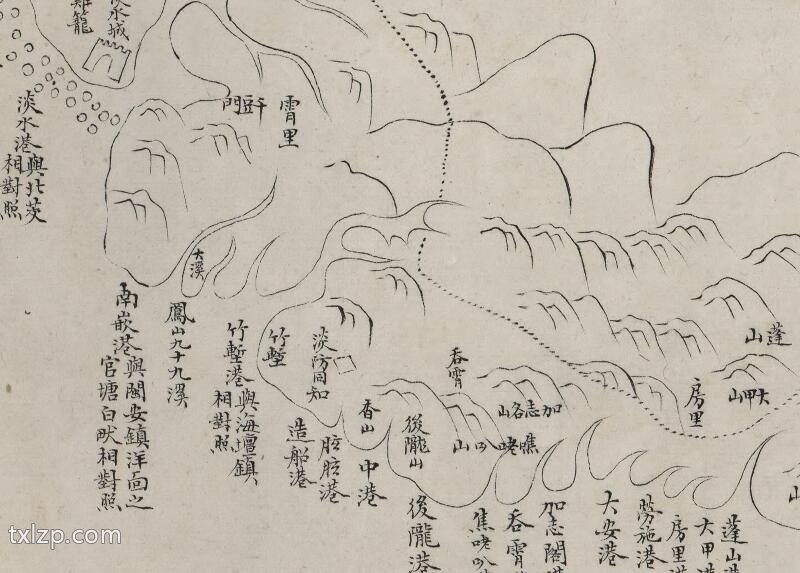 雞籠
淡水城
淡水港與北茭
相對照
干豆門
霄里
大溪
南嵌港與閩安鎮洋面之
官塘白畎相對照
鳳山九十九溪
竹塹港與海壇鎮
相對照
竹塹
淡防同知
造船港
香山
中港
後隴山
後隴港
吞霄
加志各山
房里
蓬山
大甲山
加志閣港
大安港
勞施港
房里港
大甲港
蓬山港
山
txlzp.com